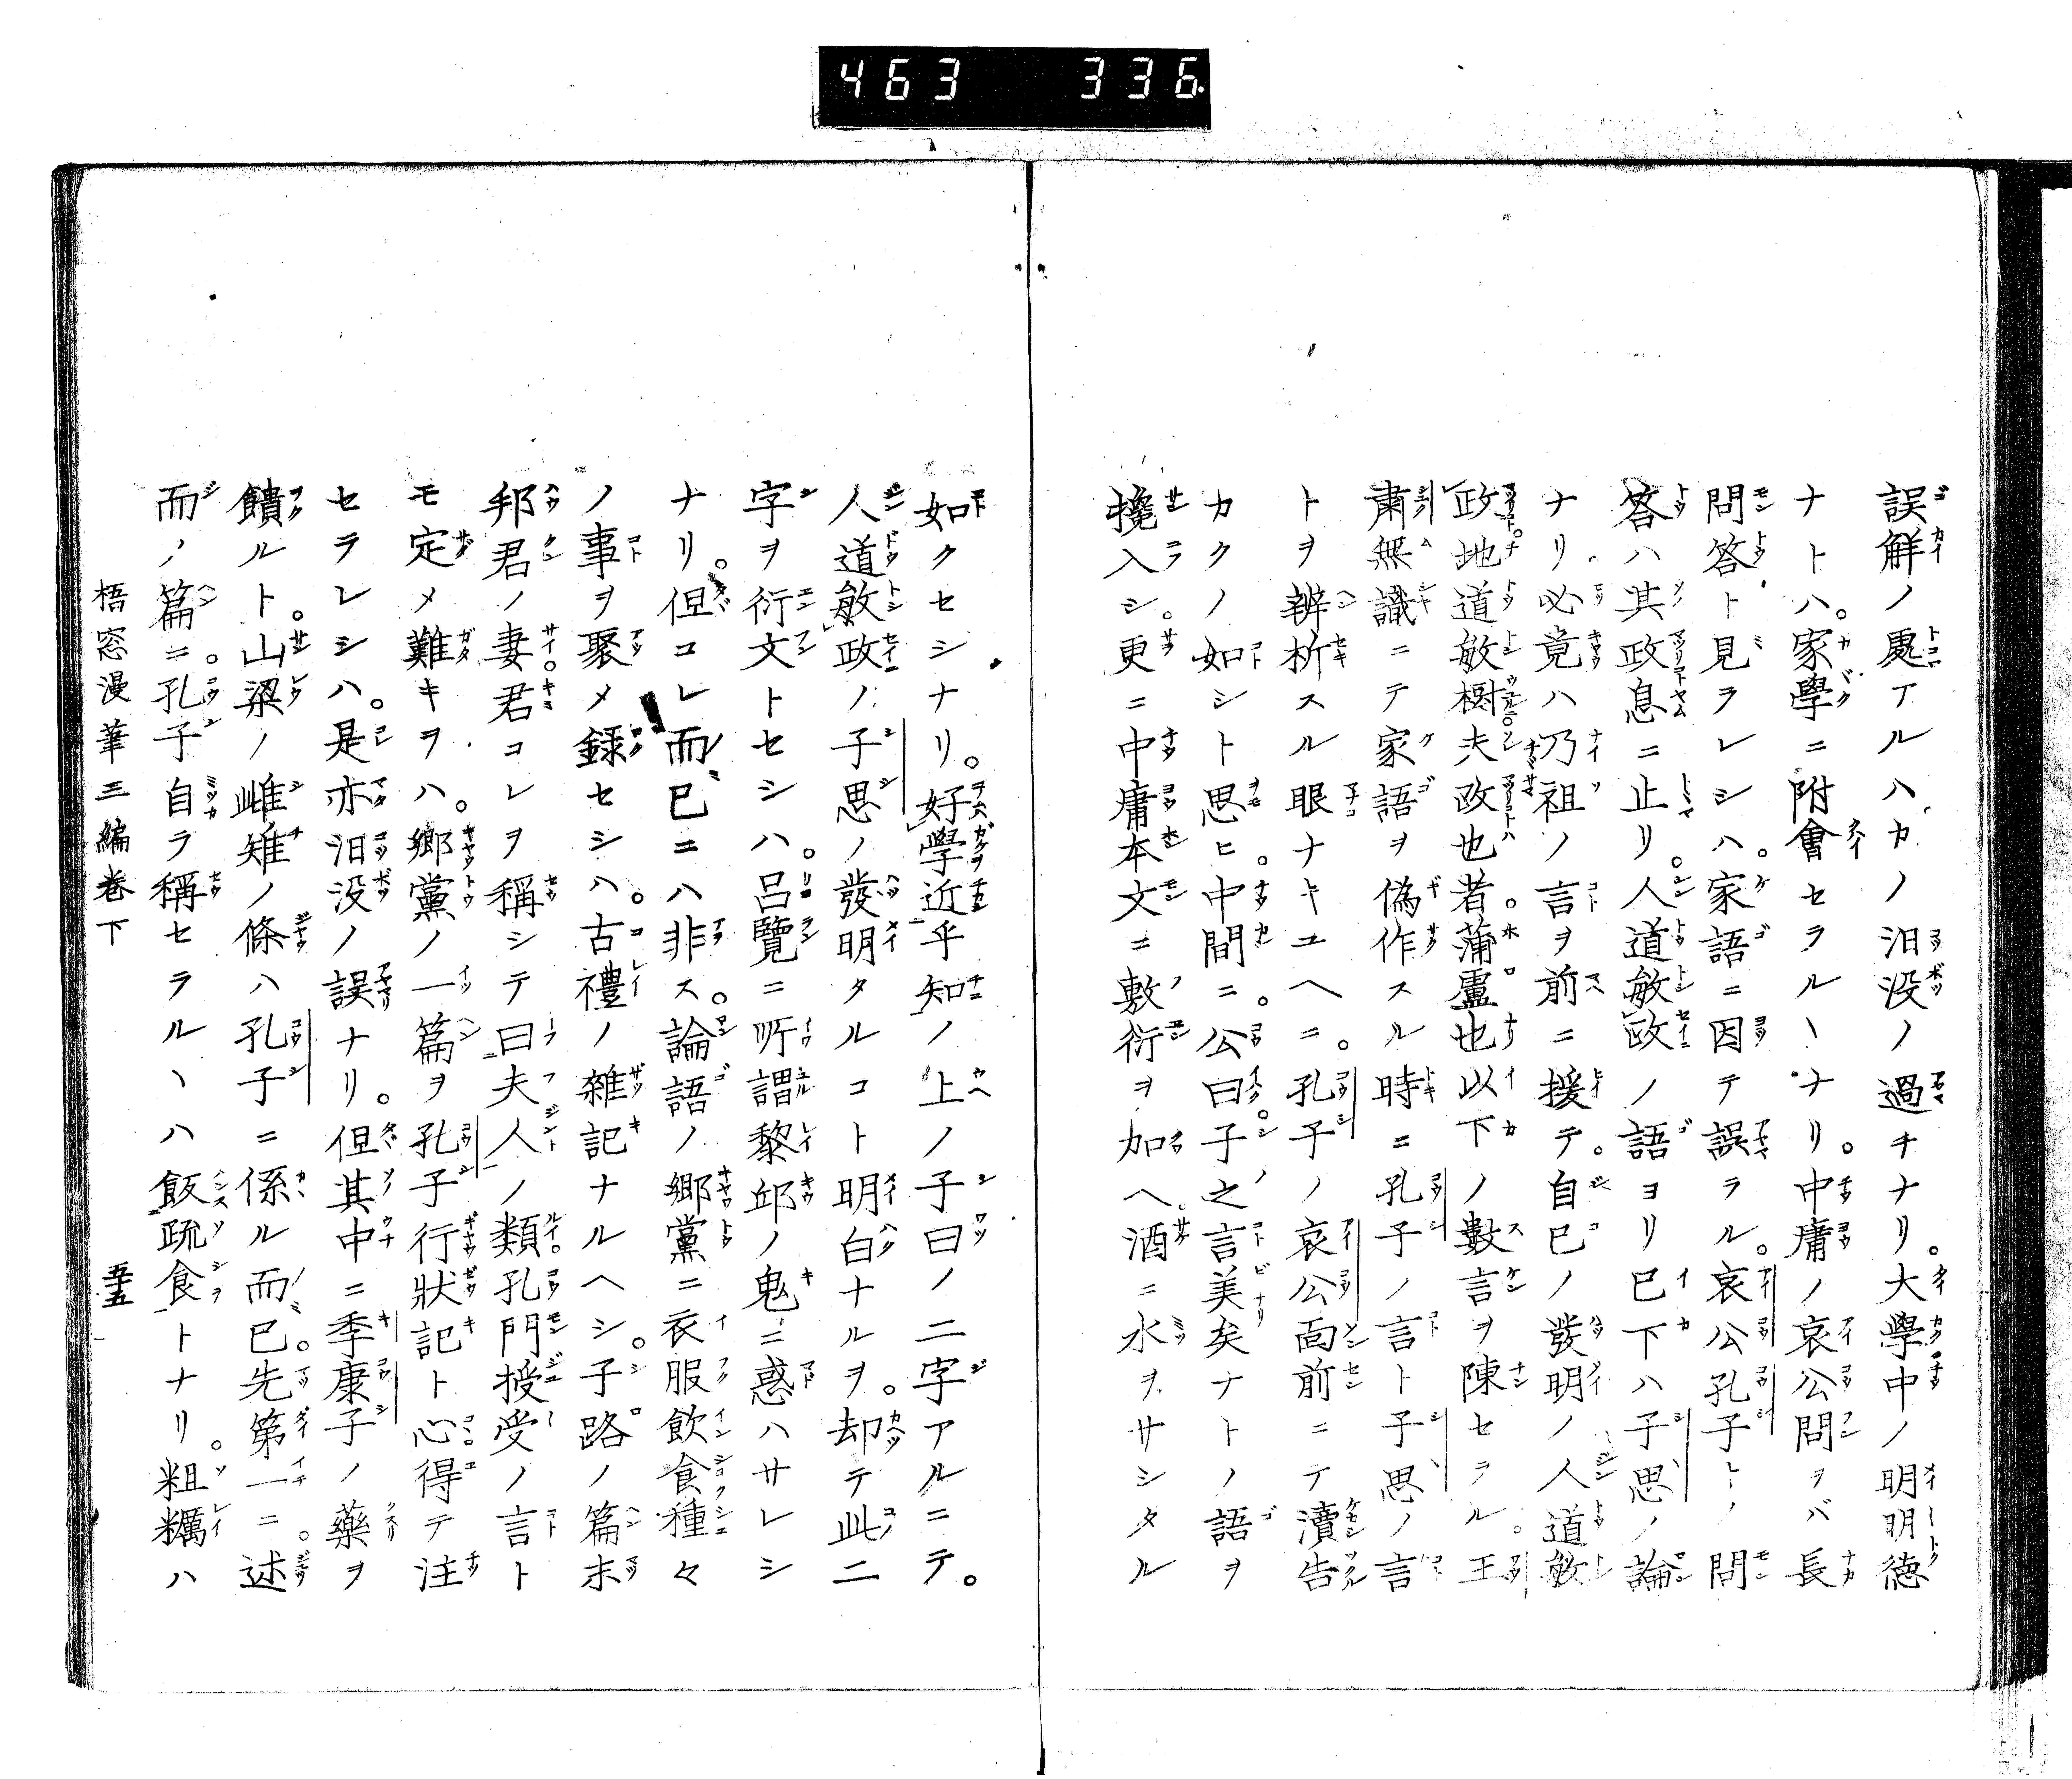 463 336
誤解ノ處アルハカノ汨没ノ過チナリ。大學中ノ明明徳
ナトハ。家學ニ附會セラルヽナリ。中庸ノ哀公問ヲバ長
問答ト見ラレシハ。家語ニ因テ誤ラル。哀公孔子トノ問
答ハ其政息ニ止リ。人道敏政ノ語ヨリ已下ハ子思ノ論
ナリ。必竟ハ乃祖ノ言ヲ前ニ援テ。自己ノ發明ノ人道敏
政地道敏樹夫政也者。蒲盧也以下ノ數言ヲ陳セラル。王
肅無識ニテ家語ヲ偽作スル時ニ孔子ノ言ト子思ノ言
トヲ辨析スル眼ナキユヘニ。孔子ノ哀公面前ニテ瀆告
カクノ如シト思ヒ。中間ニ。公曰子之言美矣ナトノ語ヲ
攙入シ。更ニ中庸本文ニ敷衍ヲ加ヘ。酒ニ水ヲサシタル
如クセシナリ。好學近乎知ノ上ノ子曰ノ二字アルニテ。
人道敏政ノ子思ノ發明タルコト明白ナルヲ。却テ此二
字ヲ衍文トセシハ。呂覽ニ所謂黎邱ノ鬼ニ惑ハサレシ
ナリ。但コレ而已ニハ非ス。論語ノ郷黨ニ衣服飲食種々
ノ事ヲ聚メ録セシハ。古禮ノ雜記ナルヘシ。子路ノ篇末
邦君ノ妻。君コレヲ稱シテ曰夫人ノ類。孔門授受ノ言ト
モ定メ難キヲハ。郷黨ノ一篇ヲ孔子行狀記ト心得テ注
セラレシハ。是亦汨没ノ誤ナリ。但其中ニ季康子ノ藥ヲ
饋ルト。山梁ノ雌雉ノ條ハ孔子ニ係ル而已。先第一ニ。述
而ノ篇ニ。孔子自ラ稱セラルヽハ飯疏食トナリ。粗糲ハ
梧窓漫筆三編卷下
五十五